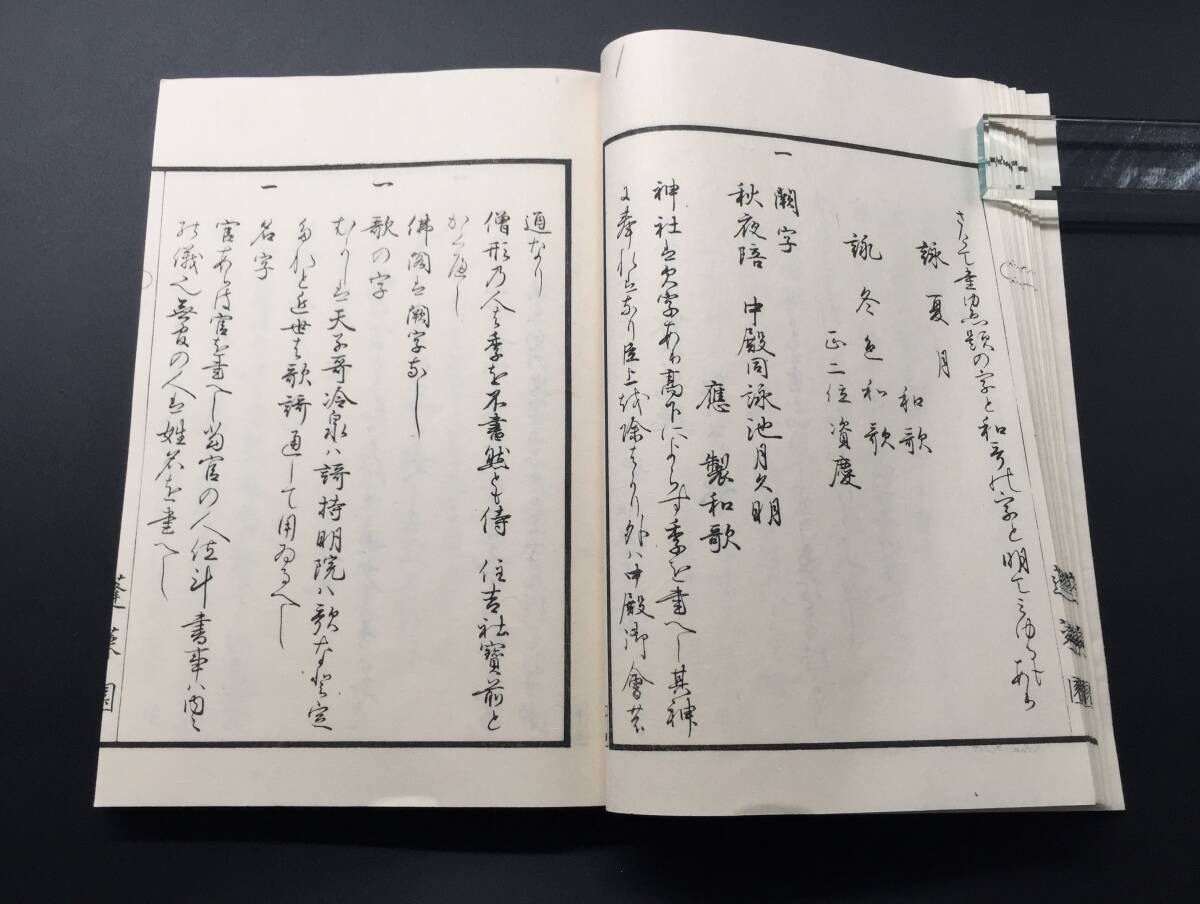 さて書ゆへ題の字と和哥の字と明てミゆるあり
詠夏月
和歌
詠冬色和歌
正二位資慶
一 闕字
秋夜陪 中殿同詠池月久明
應 製和歌
神社は欠字あり高下によらす季を書へし其神
に奉れはなり臣上を除より外ハ中殿御會等
通なり
僧形乃人は季を不書然とも侍 住吉社寶前と
かくへし
佛閣は闕字なし
一 歌の字
むかしは天子哥冷泉ハ謌持明院ハ歌なと定
たれと近世は歌謌通して用ゐるへし
一 名字
官あらは官を書へし當官の人位斗書事ハ内々
の儀也無官の人は姓名を書へし
蓬莱園